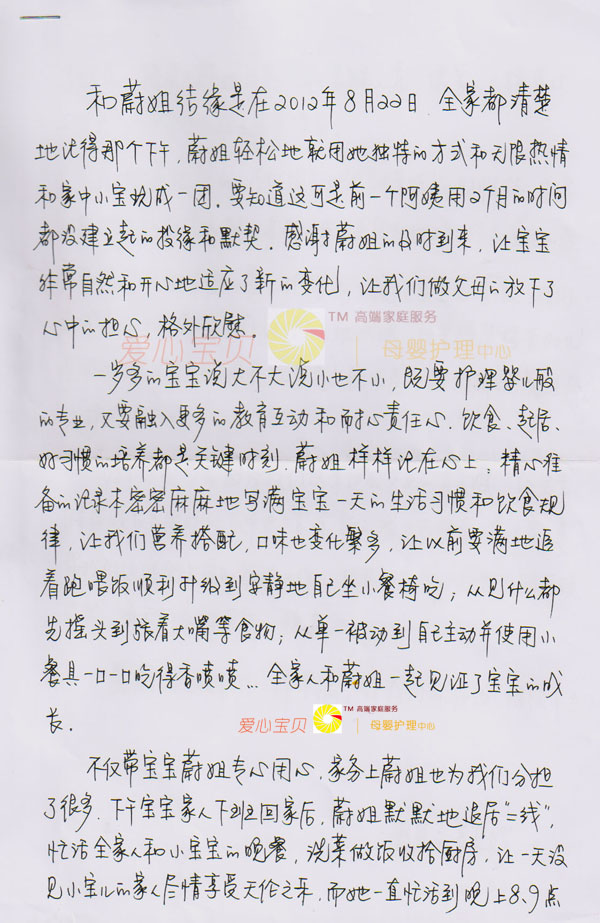 和蔚姐结缘是在2012年8月22日 全家都清楚
地记得那个下午,蔚姐轻松地就用她独特的方式和无限热情
和家中小宝玩成一团。要知道这可是前一个阿姨用2个月的时间
都没建立起的投缘和默契。感谢蔚姐的及时到来,让宝宝
非常自然和开心地适应了新的变化,让我们做父母的放下了
心中的担心,格外欣慰。
爱心宝贝 TM 高端家庭服务 母婴护理中心
一岁多的宝宝说大不大说小也不小,既要护理婴儿般
的专业,又要融入更多的教育互动和耐心责任心。饮食、起居、
好习惯的培养都是关键时刻.蔚姐样样记在心上:精心准
备的记录本密密麻麻地写满宝宝一天的生活习惯和饮食规
律,让我们营养搭配,口味也变化繁多,让以前要满地追
着跑喂饭顺利升级到安静地自己坐小餐椅吃;从见什么都
先摇头到张着大嘴等食物;从单一被动到自己主动并使用小
餐具一口一口吃得香喷喷...全家人和蔚姐一起见证了宝宝的成
长。
爱心宝贝 TM 高端家庭服务 母婴护理中心
不仅带宝宝蔚姐专心用心,家务上蔚姐也为我们分担
了很多.下午宝宝家人下班回家后,蔚姐默默地退居"二线",
忙活全家人和小宝宝的晚餐,洗菜做饭收拾厨房,让一天没
见小宝儿的家人尽情享受天伦之乐,而她一直忙活到晚上8、9点